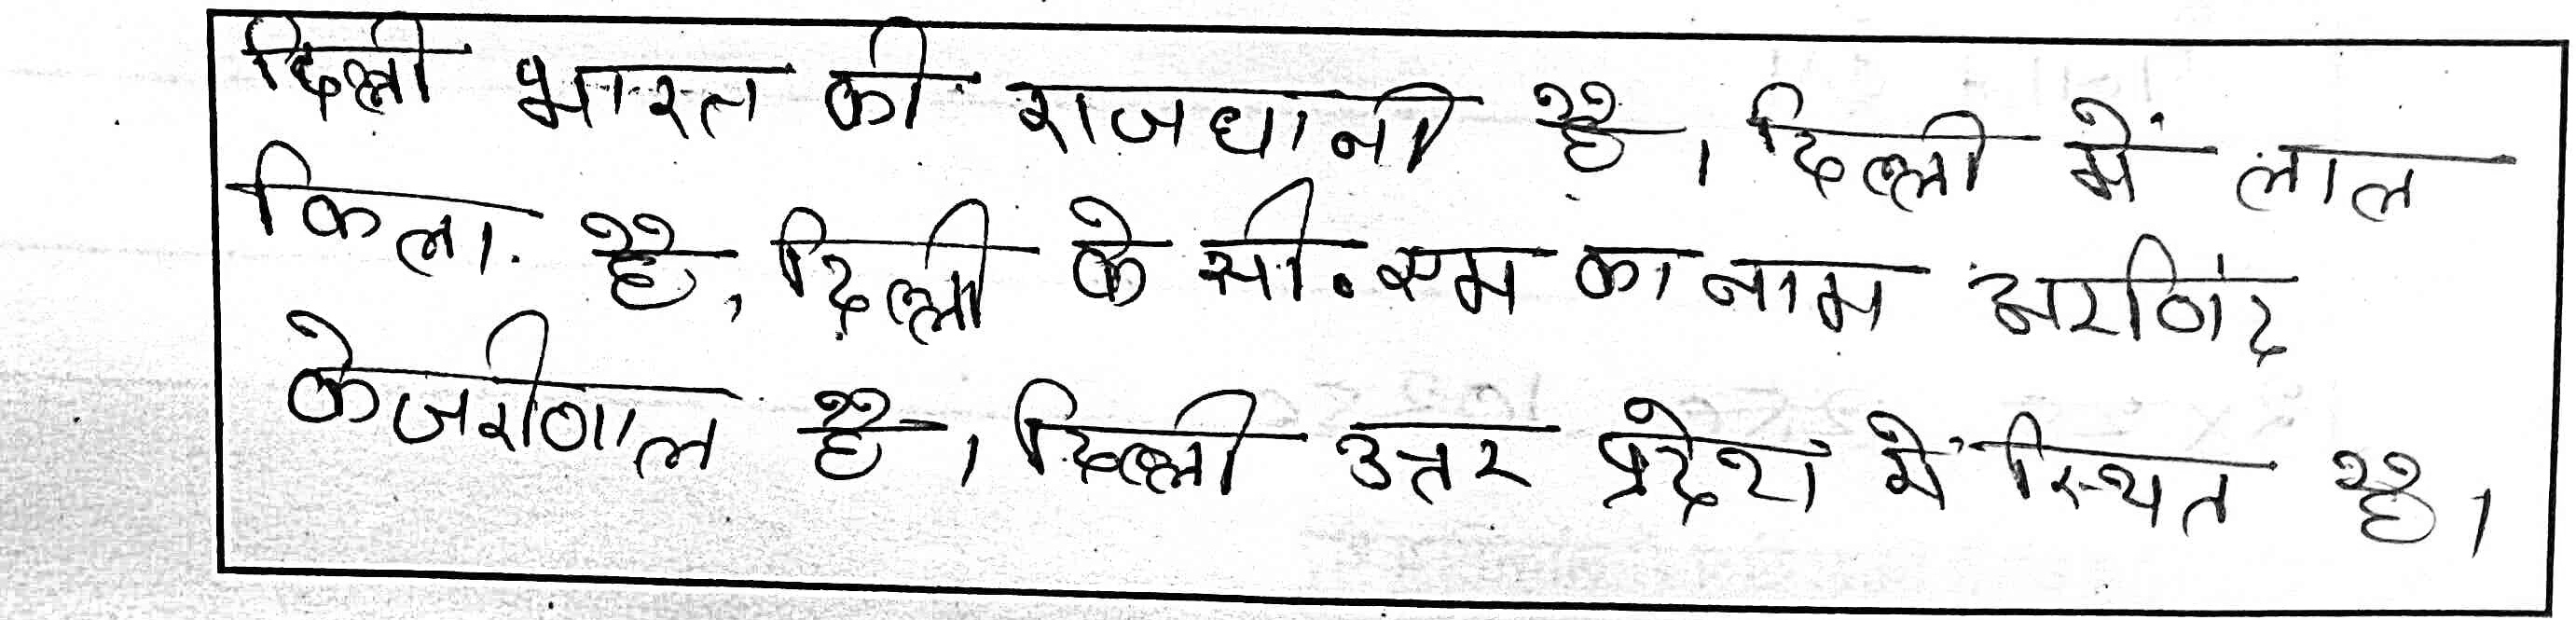 दिल्ली भारत की राजधानी है। दिल्ली में लाल
किला है, दिल्ली के सी.एम का नाम अरविंद
केजरीवाल है। दिल्ली उत्तर प्रदेश में स्थित है।